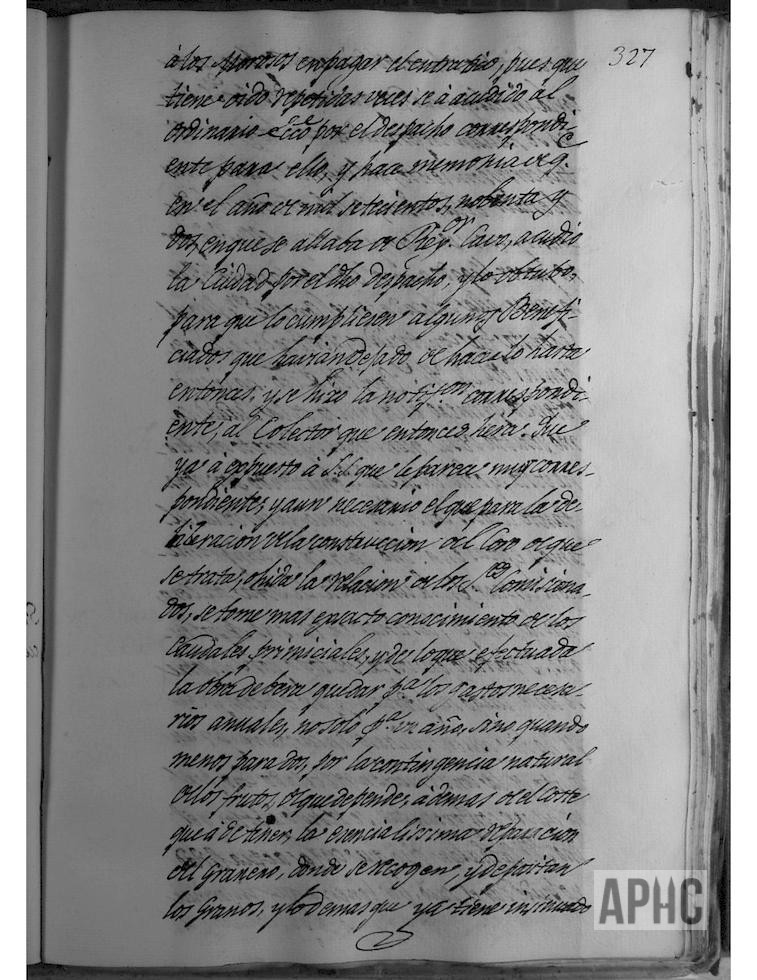 327
à los Morosos en pagar el entredicho, pues que
tiene oido repetidas veces se à acudido àl
ordinario Ecco por el despacho correspondi-
ente para ello, y hace memoria de q.e
en el año de mil setecientos, nobenta y
dos, en que se allaba de Rey.or Caro, acudió
la Ciudad por el dho despacho, y lo obtubo,
para que lo cumpliesen algunos Benefi-
ciados que havian dejado de hacerlo hasta
entonces, y se hizo la notif.on correspondi-
ente, àl Colector que entonces hera. Que
ya à expuesto à S.I. que le parece muy corres-
pondiente, y aun necesario el que para la de-
liberacion de la construccion del Coro de que
se trata, ohida la relacion de los S.res Comisiona-
dos, se tome mas exacto conocimiento de los
Caudales primiciales, y de lo que efectuada
la obra debera quedar p.a los gastos necesa-
rios anuales, no solo p.a un año, sino quando
menos para dos, por la contingencia natural
de los frutos, de que depende, à demas del Coste
que à de tener la esencialissima reparacion
del Granero, donde se recogen, y depositan
los Granos, y lo demas que ya tiene insinuado
APHC